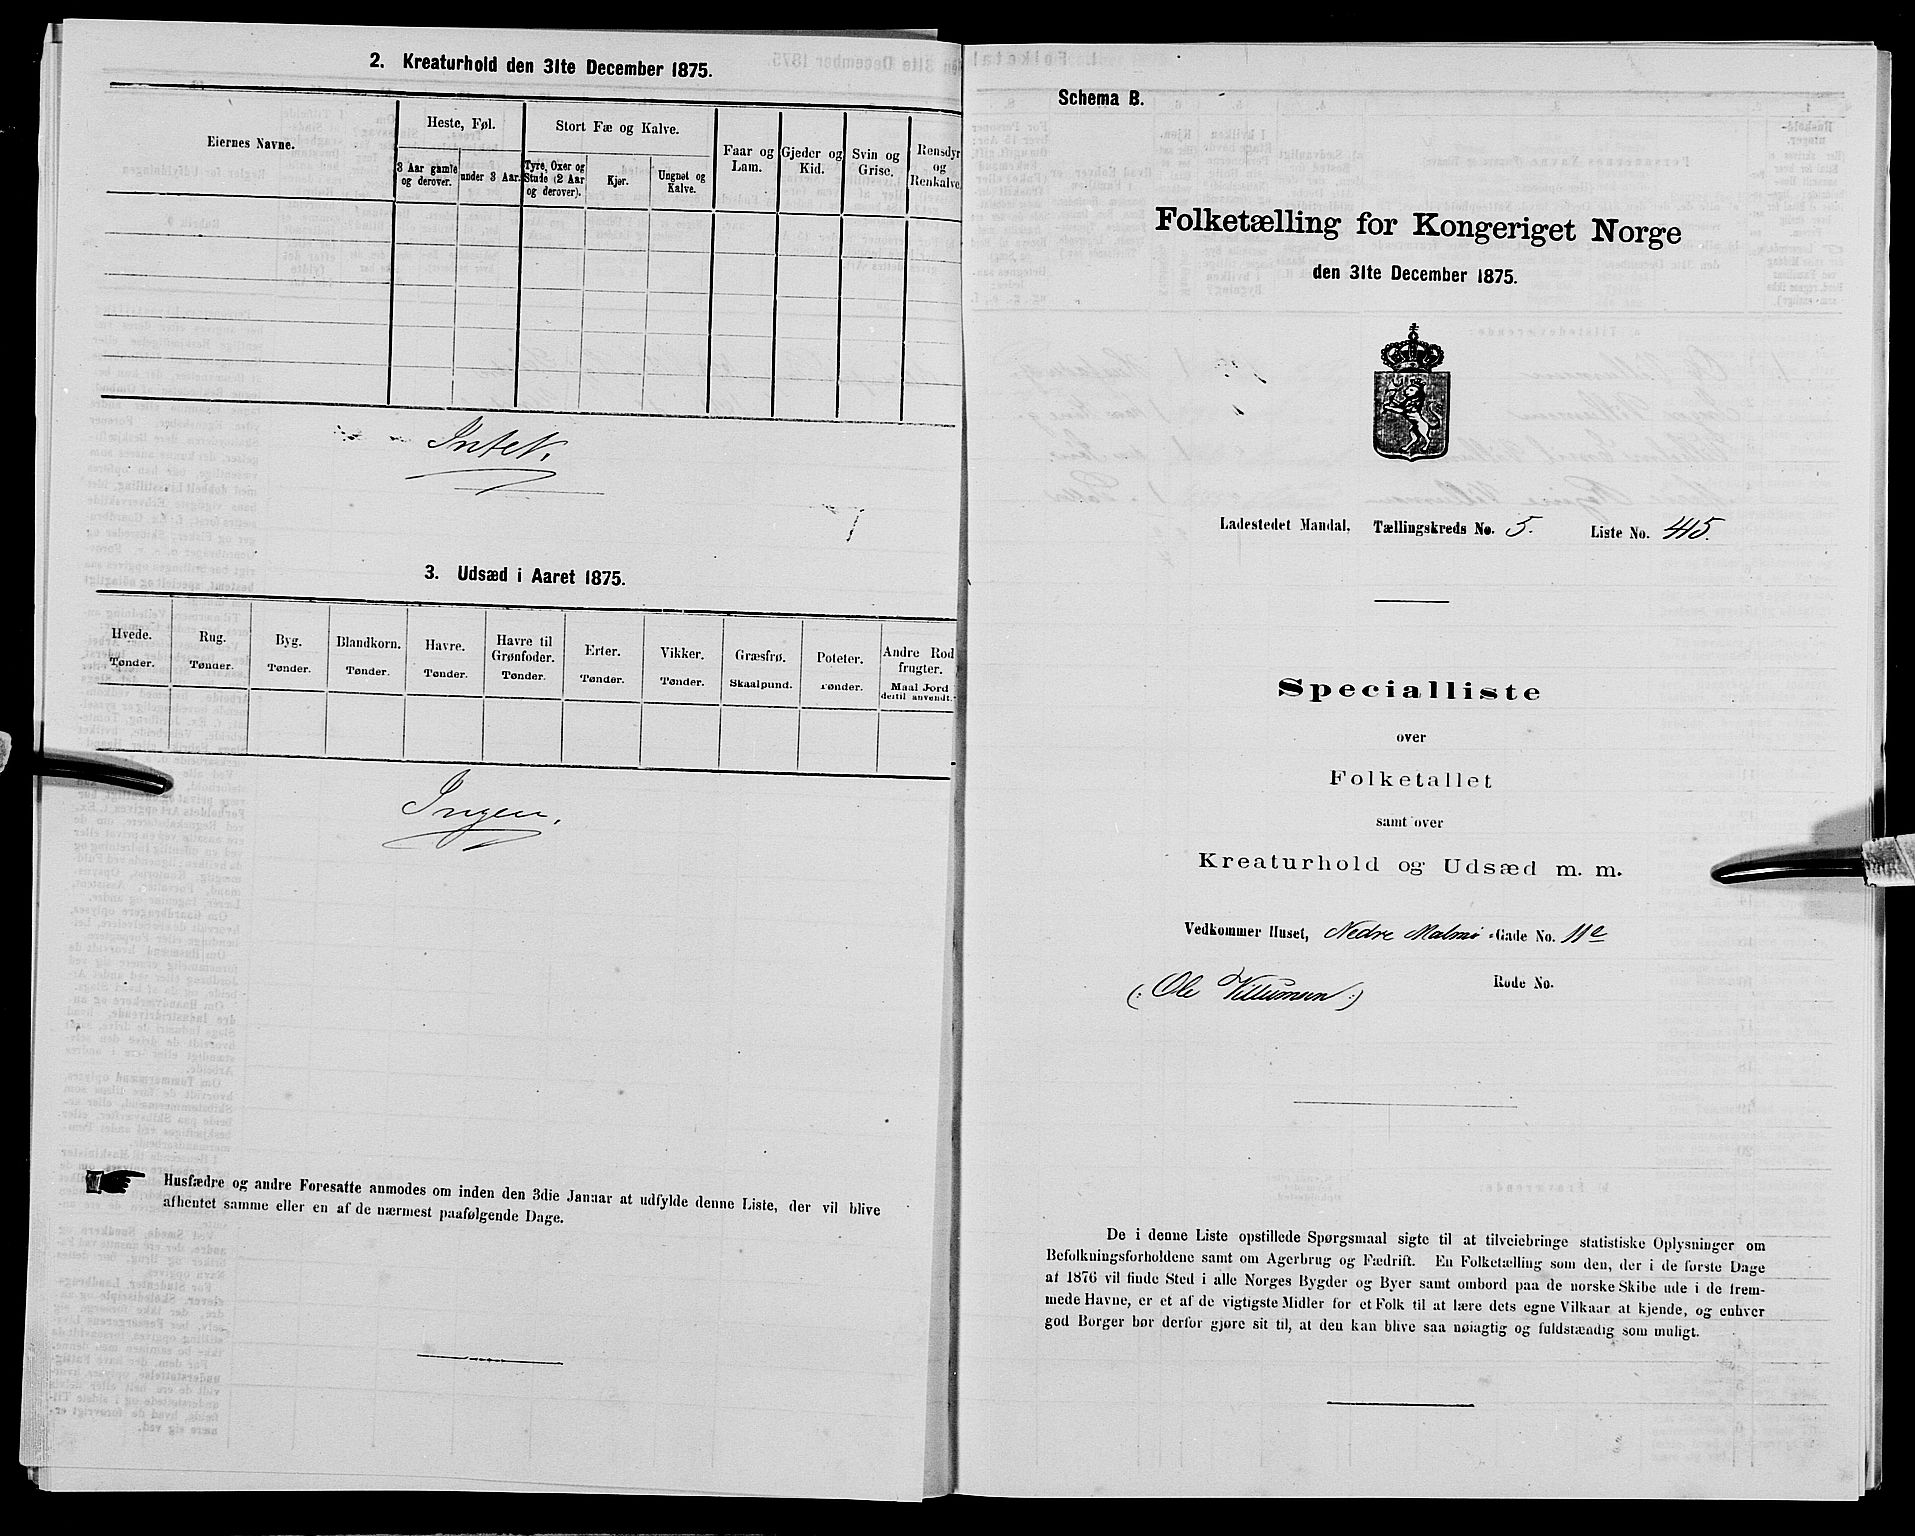 2. Kreaturhold den 31te December 1875.
Eiernes Navne.
Heste, Føl.
Stort Fæ og Kalve.
Faar og Lam.
Gjeder og Kid.
Svin og Grise.
Rensdyr og Renkalve.
3 Aar gamle og derover.
under 3 Aar.
Tyre, Oxer og Stude (2 Aar og derover).
Kjør.
Ungnøt og Kalve.
Intet.
3. Udsæd i Aaret 1875.
Hvede. Rug. Byg. Blandkorn. Havre. Havre til Grønfoder. Erter. Vikker. Græsfrø. Poteter. Andre Rodfrugter.
Tønder. Tønder. Tønder. Tønder. Tønder. Tønder. Tønder. Tønder. Skaalpund. Tønder. Maal Jord dertil anvendt.
Ingen.
Husfædre og andre Foresatte anmodes om inden den 3die Januar at udfylde denne Liste, der vil blive
afhentet samme eller en af de nærmest paafølgende Dage.
Schema B.
Folketælling for Kongeriget Norge
den 31te December 1875.
Ladestedet Mandal, Tællingskreds No. 5. Liste No. 415.
Specialliste
over
Folketallet
samt over
Kreaturhold og Udsæd m. m.
Vedkommer Huset, Nedre Malmø -Gade No. 11e
(: Ole Villumsen :) Rode No.
De i denne Liste opstillede Spørgsmaal sigte til at tilveiebringe statistiske Oplysninger om
Befolkningsforholdene samt om Agerbrug og Fædrift. En Folketælling som den, der i de første Dage
af 1876 vil finde Sted i alle Norges Bygder og Byer samt ombord paa de norske Skibe ude i de frem-
mede Havne, er et af de vigtigste Midler for et Folk til at lære dets egne Vilkaar at kjende, og enhver
god Borger bør derfor gjøre sit til, at den kan blive saa nøiagtig og fuldstændig som muligt.